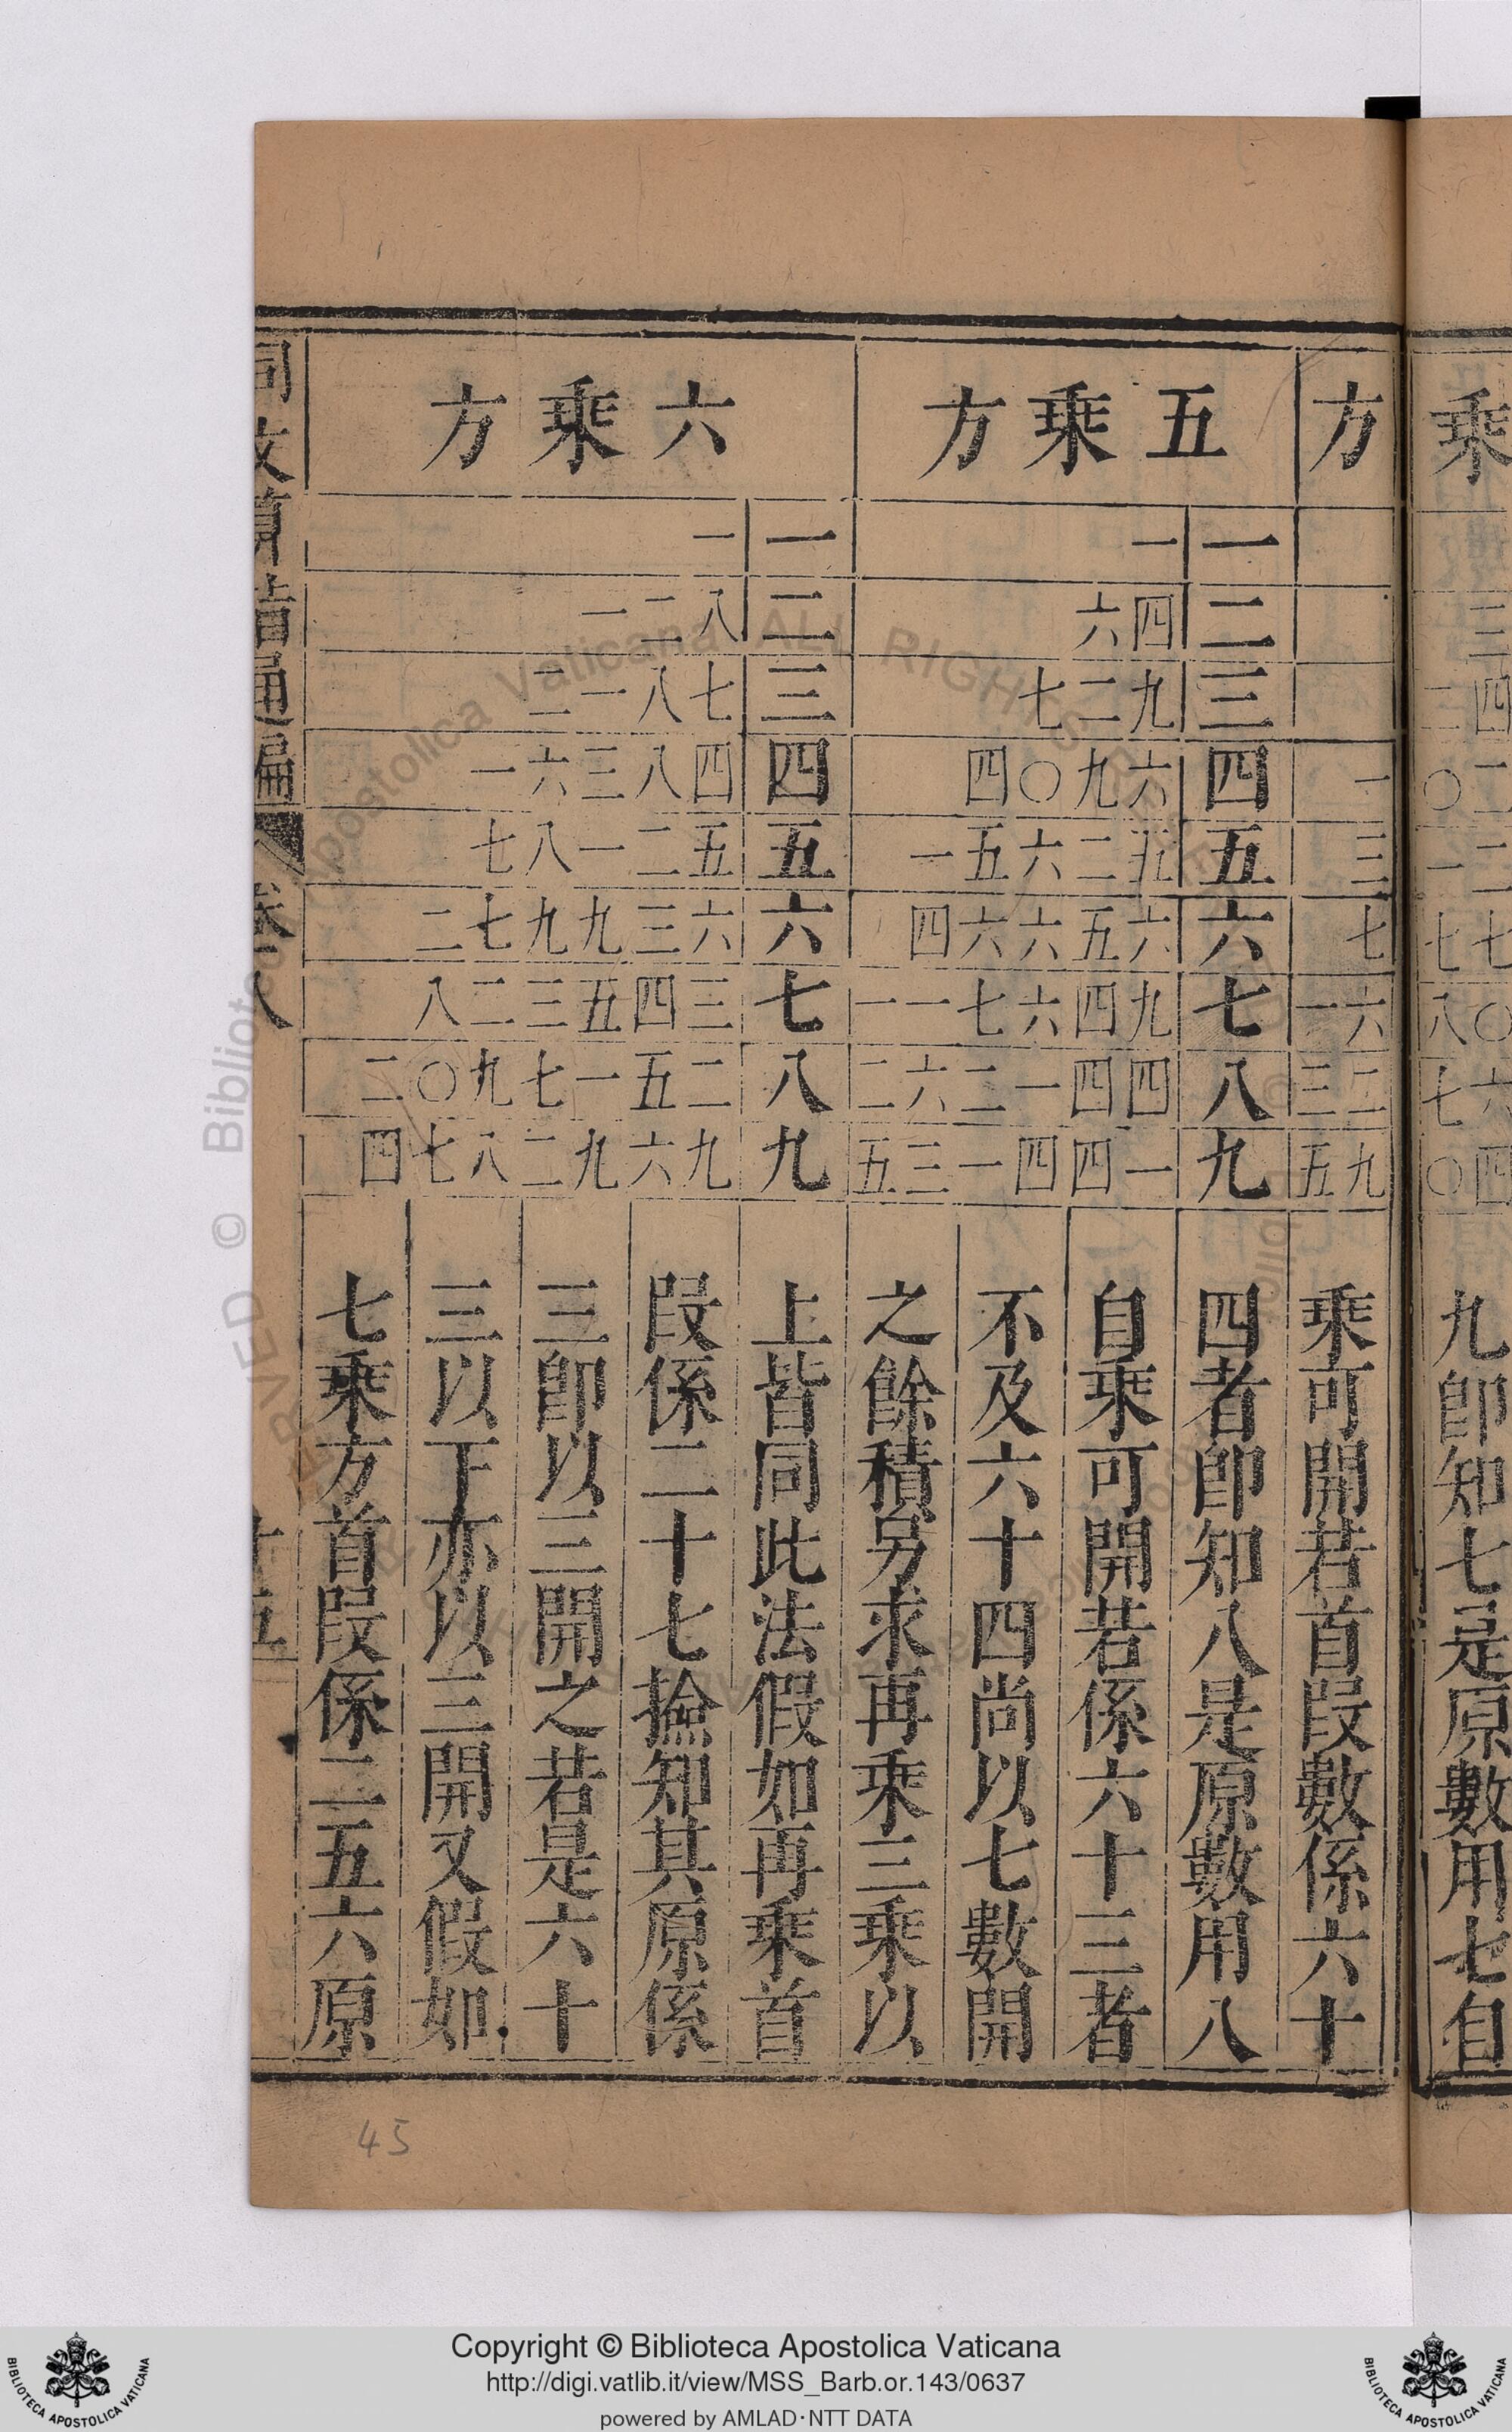 乗
三四二二七〇六四
二〇一七八七〇
九卽知七是原數用七自
方
一
三
七
六一
二三
九五
五乗方
一 一
二 四六
三 九二七
四 六九〇四
五 五二六五一
六 六五六六四
七 九四六七一一
八 四四一二六二
九 一四四一三五
六乗方
一 一
二 八二一
三 七八一二
四 四八三六一
五 五二一八七
六 六三九九七二
七 三四五三二八
八 二五一七九〇二
九 九六九二八七四
乗可開若首段數係六十
四者卽知八是原數用八
自乗可開若係六十三者
不及六十四尚以七數開
之餘積另求再乗三乗以
上皆同此法假如再乗首
段係二十七撿知其原係
三卽以三開之若是六十
三以下亦以三開又假如
七乗方首段係二五六原
同文算指通編 卷八 十五
45
Copyright © Biblioteca Apostolica Vaticana
http://digi.vatlib.it/view/MSS_Barb.or.143/0637
powered by AMLAD·NTT DATA
BIBLIOTECA APOSTOLICA VATICANA
BIBLIOTECA APOSTOLICA VATICANA